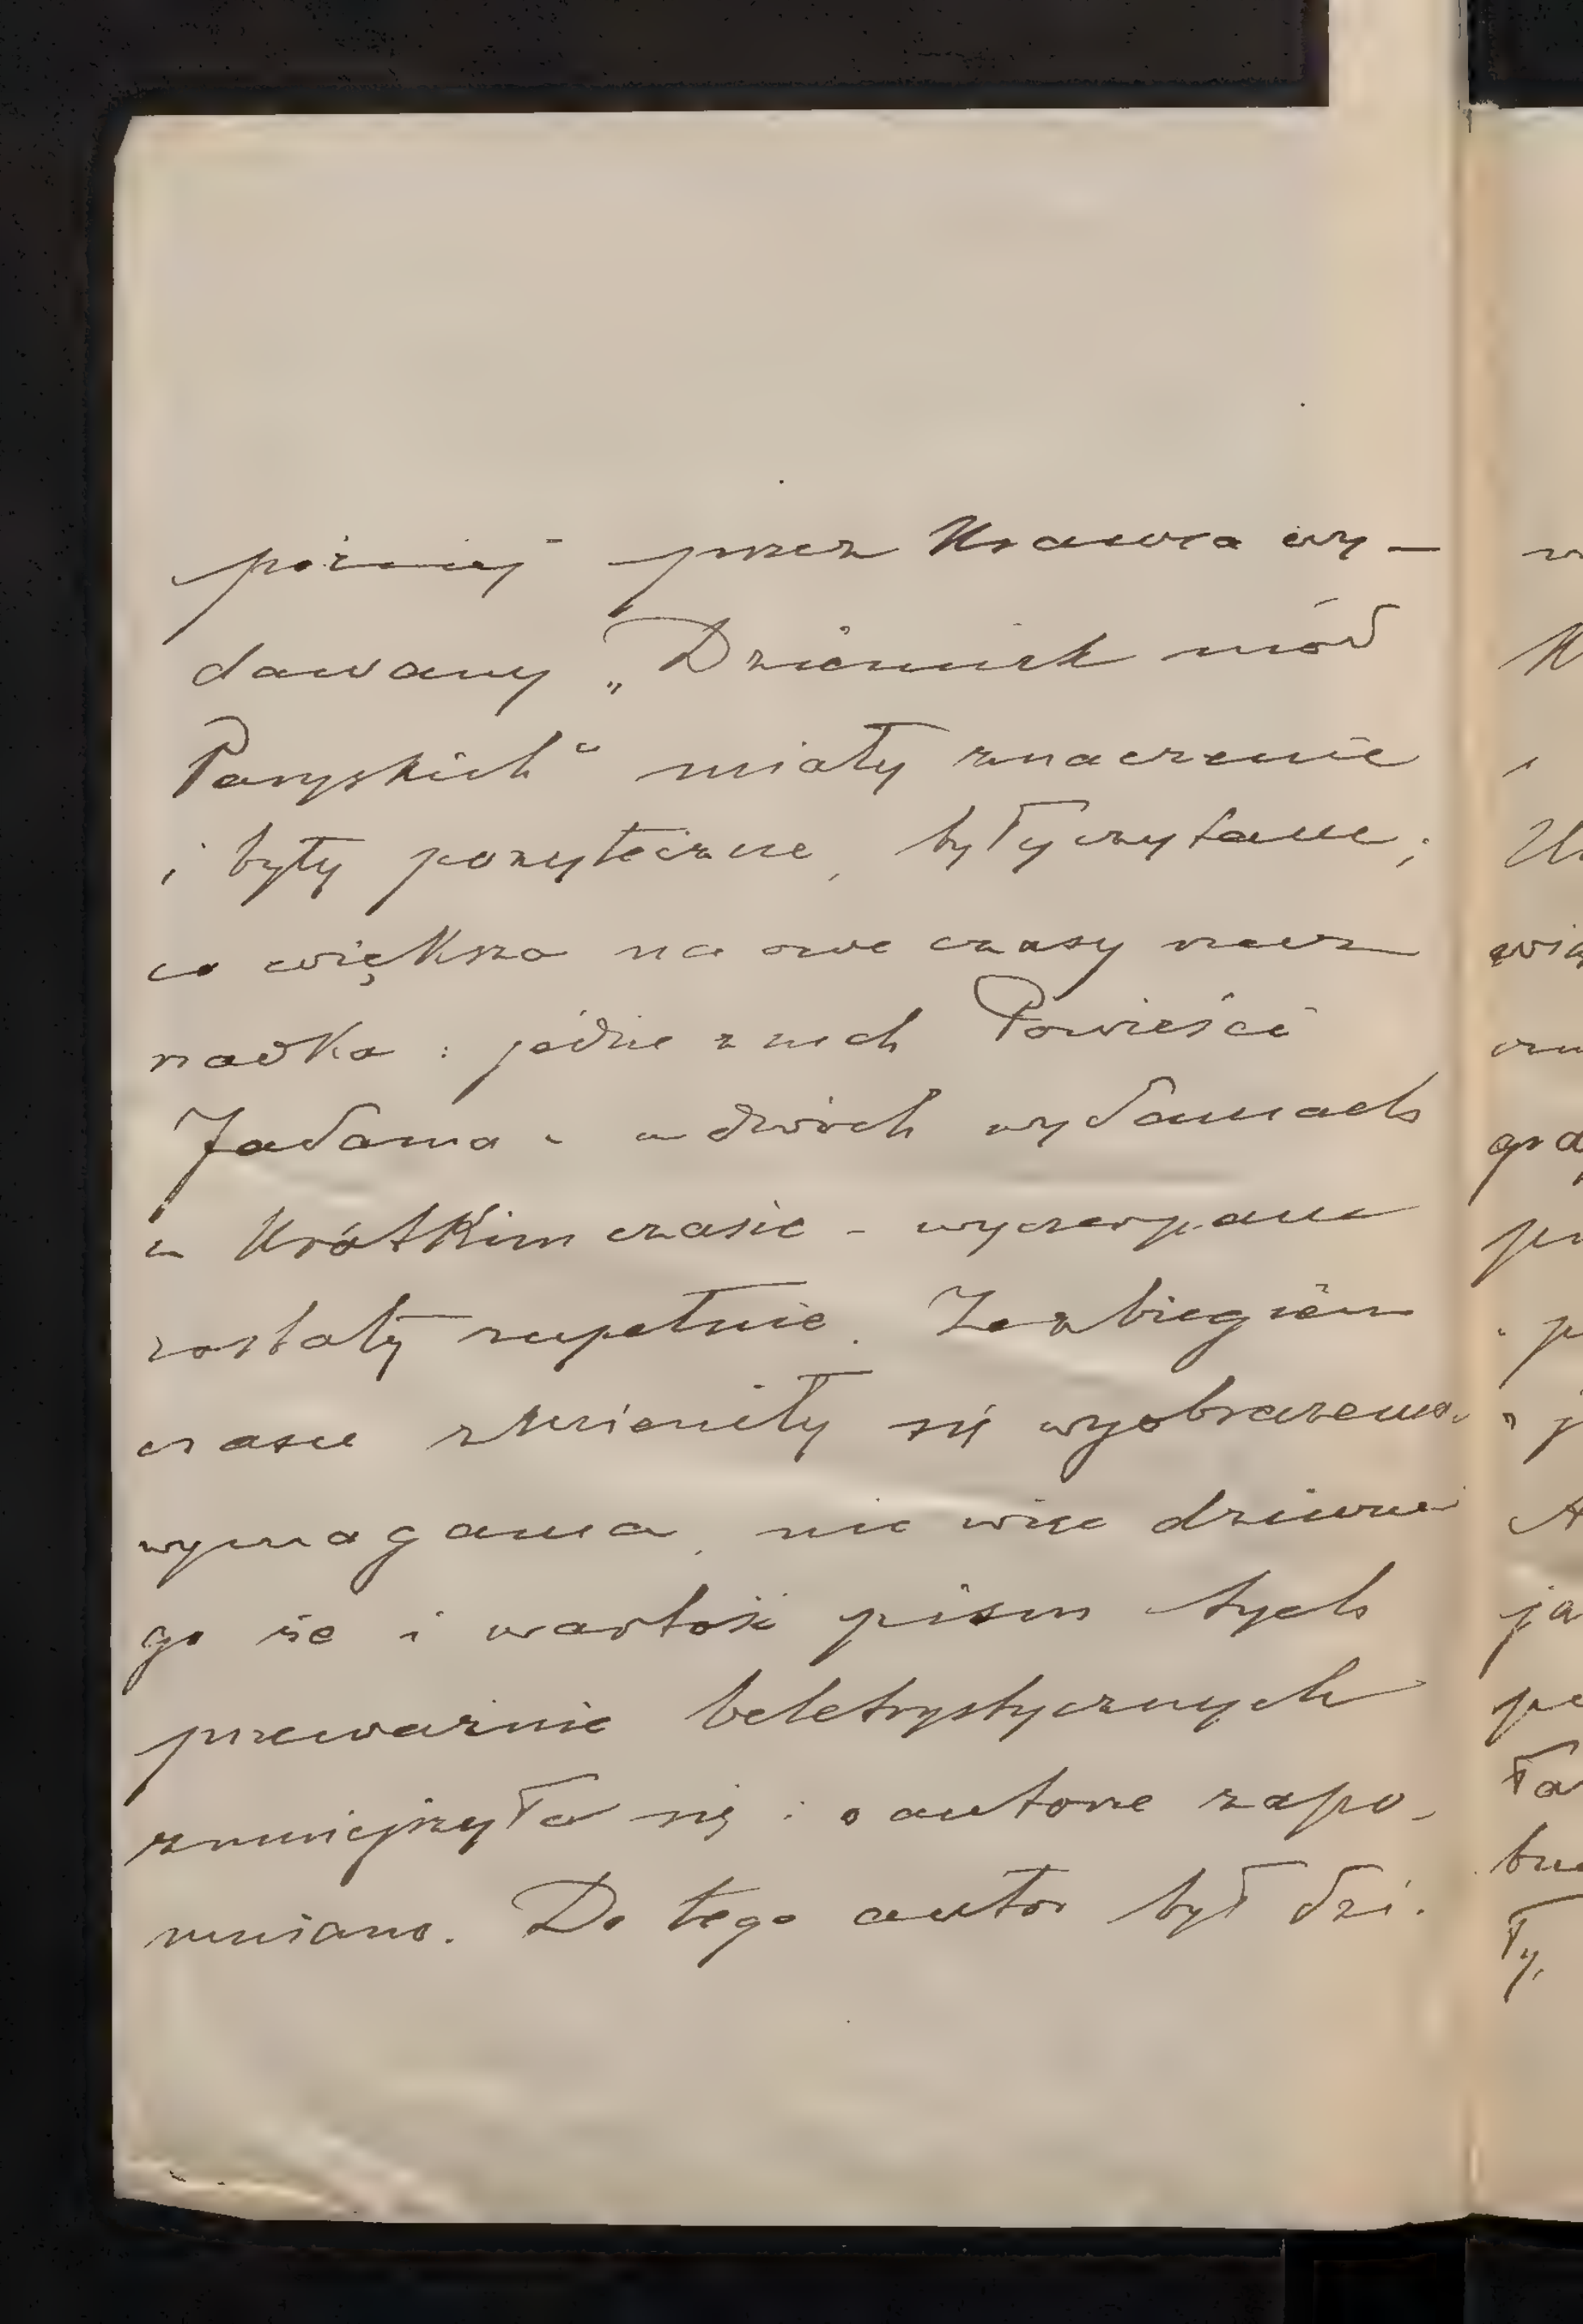 później przez Krawca wy-
dawany „Dziennik mód
Paryskich“ miały znaczenie
i były pożyteczne, były czytane;
co większa na owe czasy rzecz
rzadka: jedne z nich Powieści
Jadama - w dwóch wydaniach
w krótkim czasie - wyczerpane
zostały zupełnie. Ze zbiegiem
czasu zmieniły się wyobrażenia
wymagania, nic więc dziwne
go że i wartość pism tych
przeważnie beletrystycznych
zmniejszyła się i o autorze zapo-
mniano. Do tego autor był dzi-